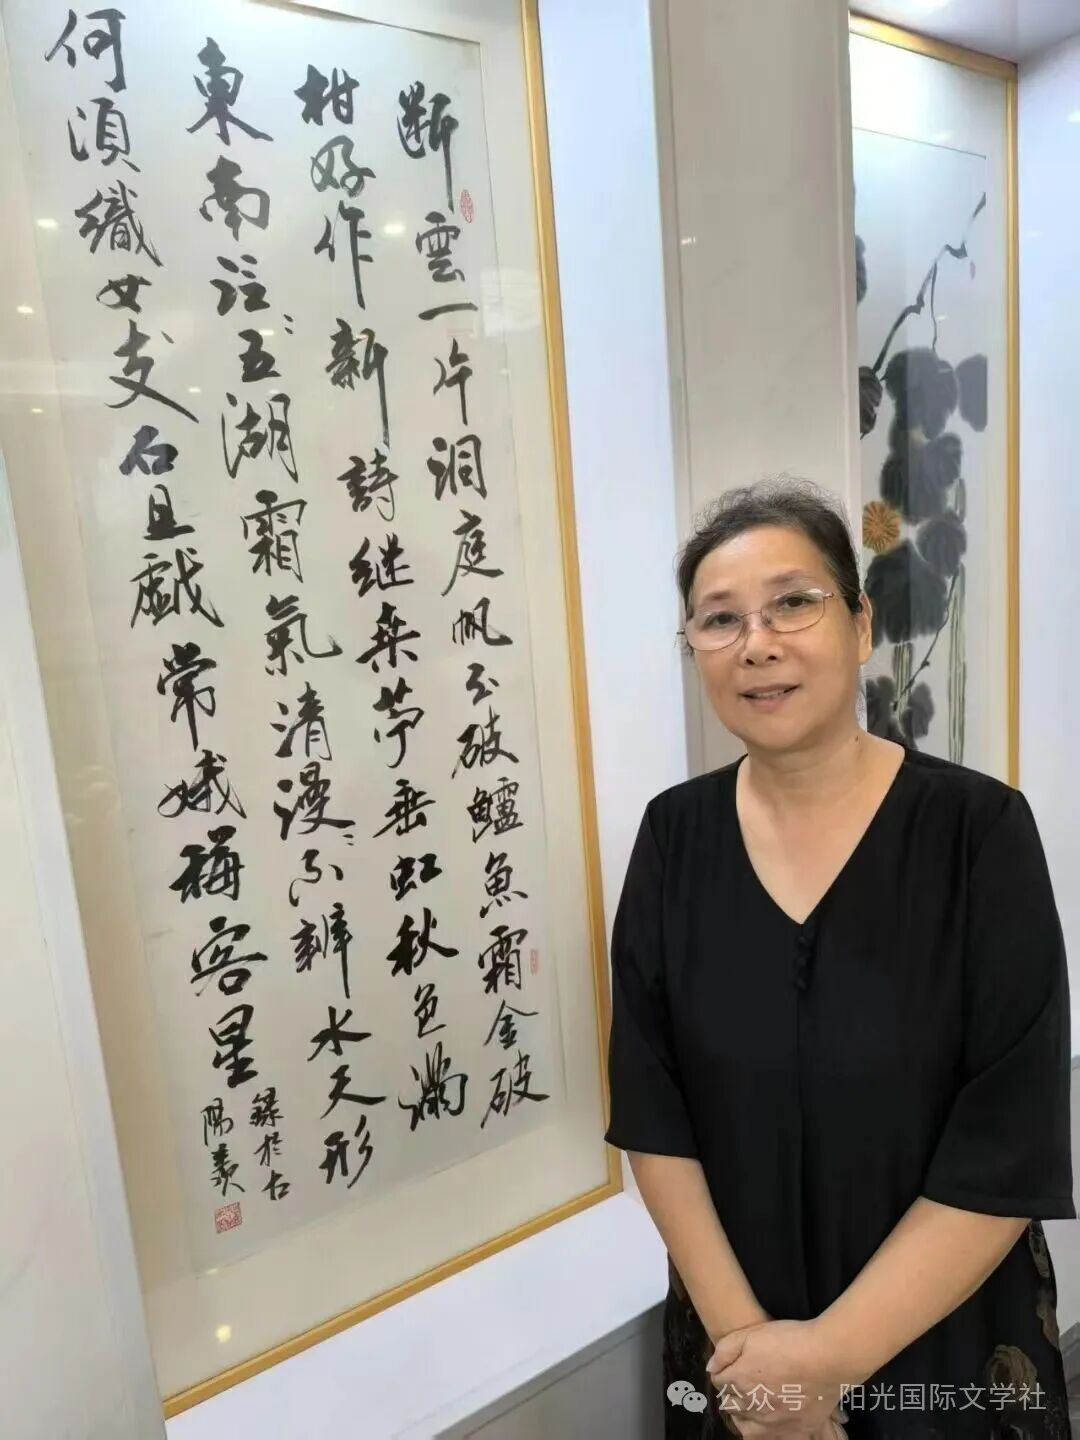 斷雲一片洞庭帆玉破鱸魚霜金破
柑好作新詩継桑苧垂虹秋色滿
東南泛〻五湖霜氣清漫〻不辨水天形
何須織女支石且戲常娥稱客星
錄於古
陽羨
公众号 · 阳光国际文学社